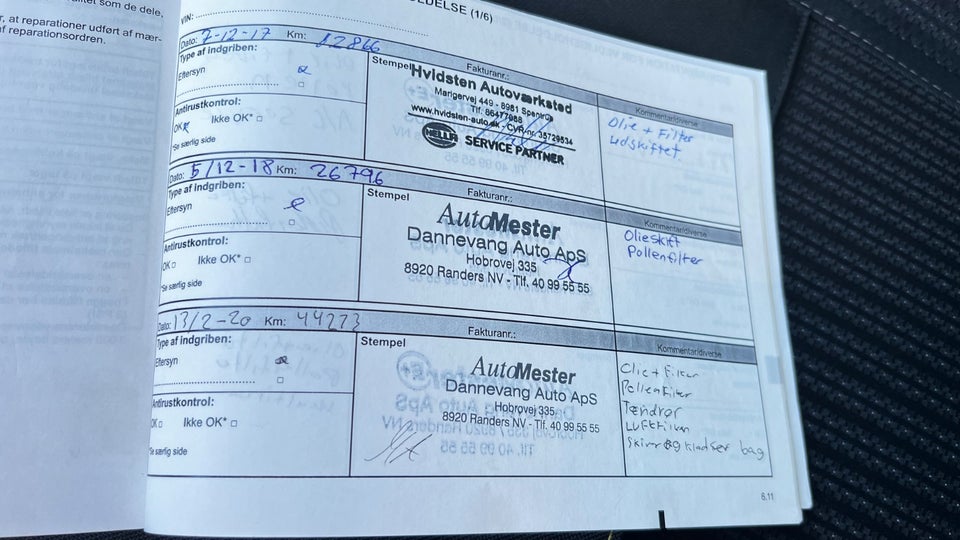 ELDELSE (1/6)
litet som de dele,
r, at reparationer udført af mær-
f reparationsordren.
VIN:
Dato: 7-12-17 Km: 12866
Type af indgriben:
Eftersyn
Antirustkontrol:
OK Ikke OK*
*Se særlig side
Stempel Fakturanr.:
Hvidsten Autoværksted
Mariagervej 449 - 8981 Spentrup
Tlf. 86477088
www.hvidsten-auto.dk - CVR-nr. 35729534
HELLA SERVICE PARTNER
Kommentar/diverse
Olie + Filter
Udskiftet.
Dato: 5/12-18 Km: 26796
Type af indgriben:
Eftersyn
Antirustkontrol:
OK Ikke OK*
*Se særlig side
Stempel Fakturanr.:
AutoMester
Dannevang Auto ApS
Hobrovej 335
8920 Randers NV - Tlf. 40 99 55 55
Kommentar/diverse
Olieskift
Pollenfilter
Dato: 13/2-20 Km: 44273
Type af indgriben:
Eftersyn
Antirustkontrol:
OK Ikke OK*
*Se særlig side
Stempel Fakturanr.:
AutoMester
Dannevang Auto ApS
Hobrovej 335
8920 Randers NV - Tlf. 40 99 55 55
Kommentar/diverse
Olie + Filter
Pollenfilter
Tændrør
Luftfilter
Skiver og klodser bag
6.11